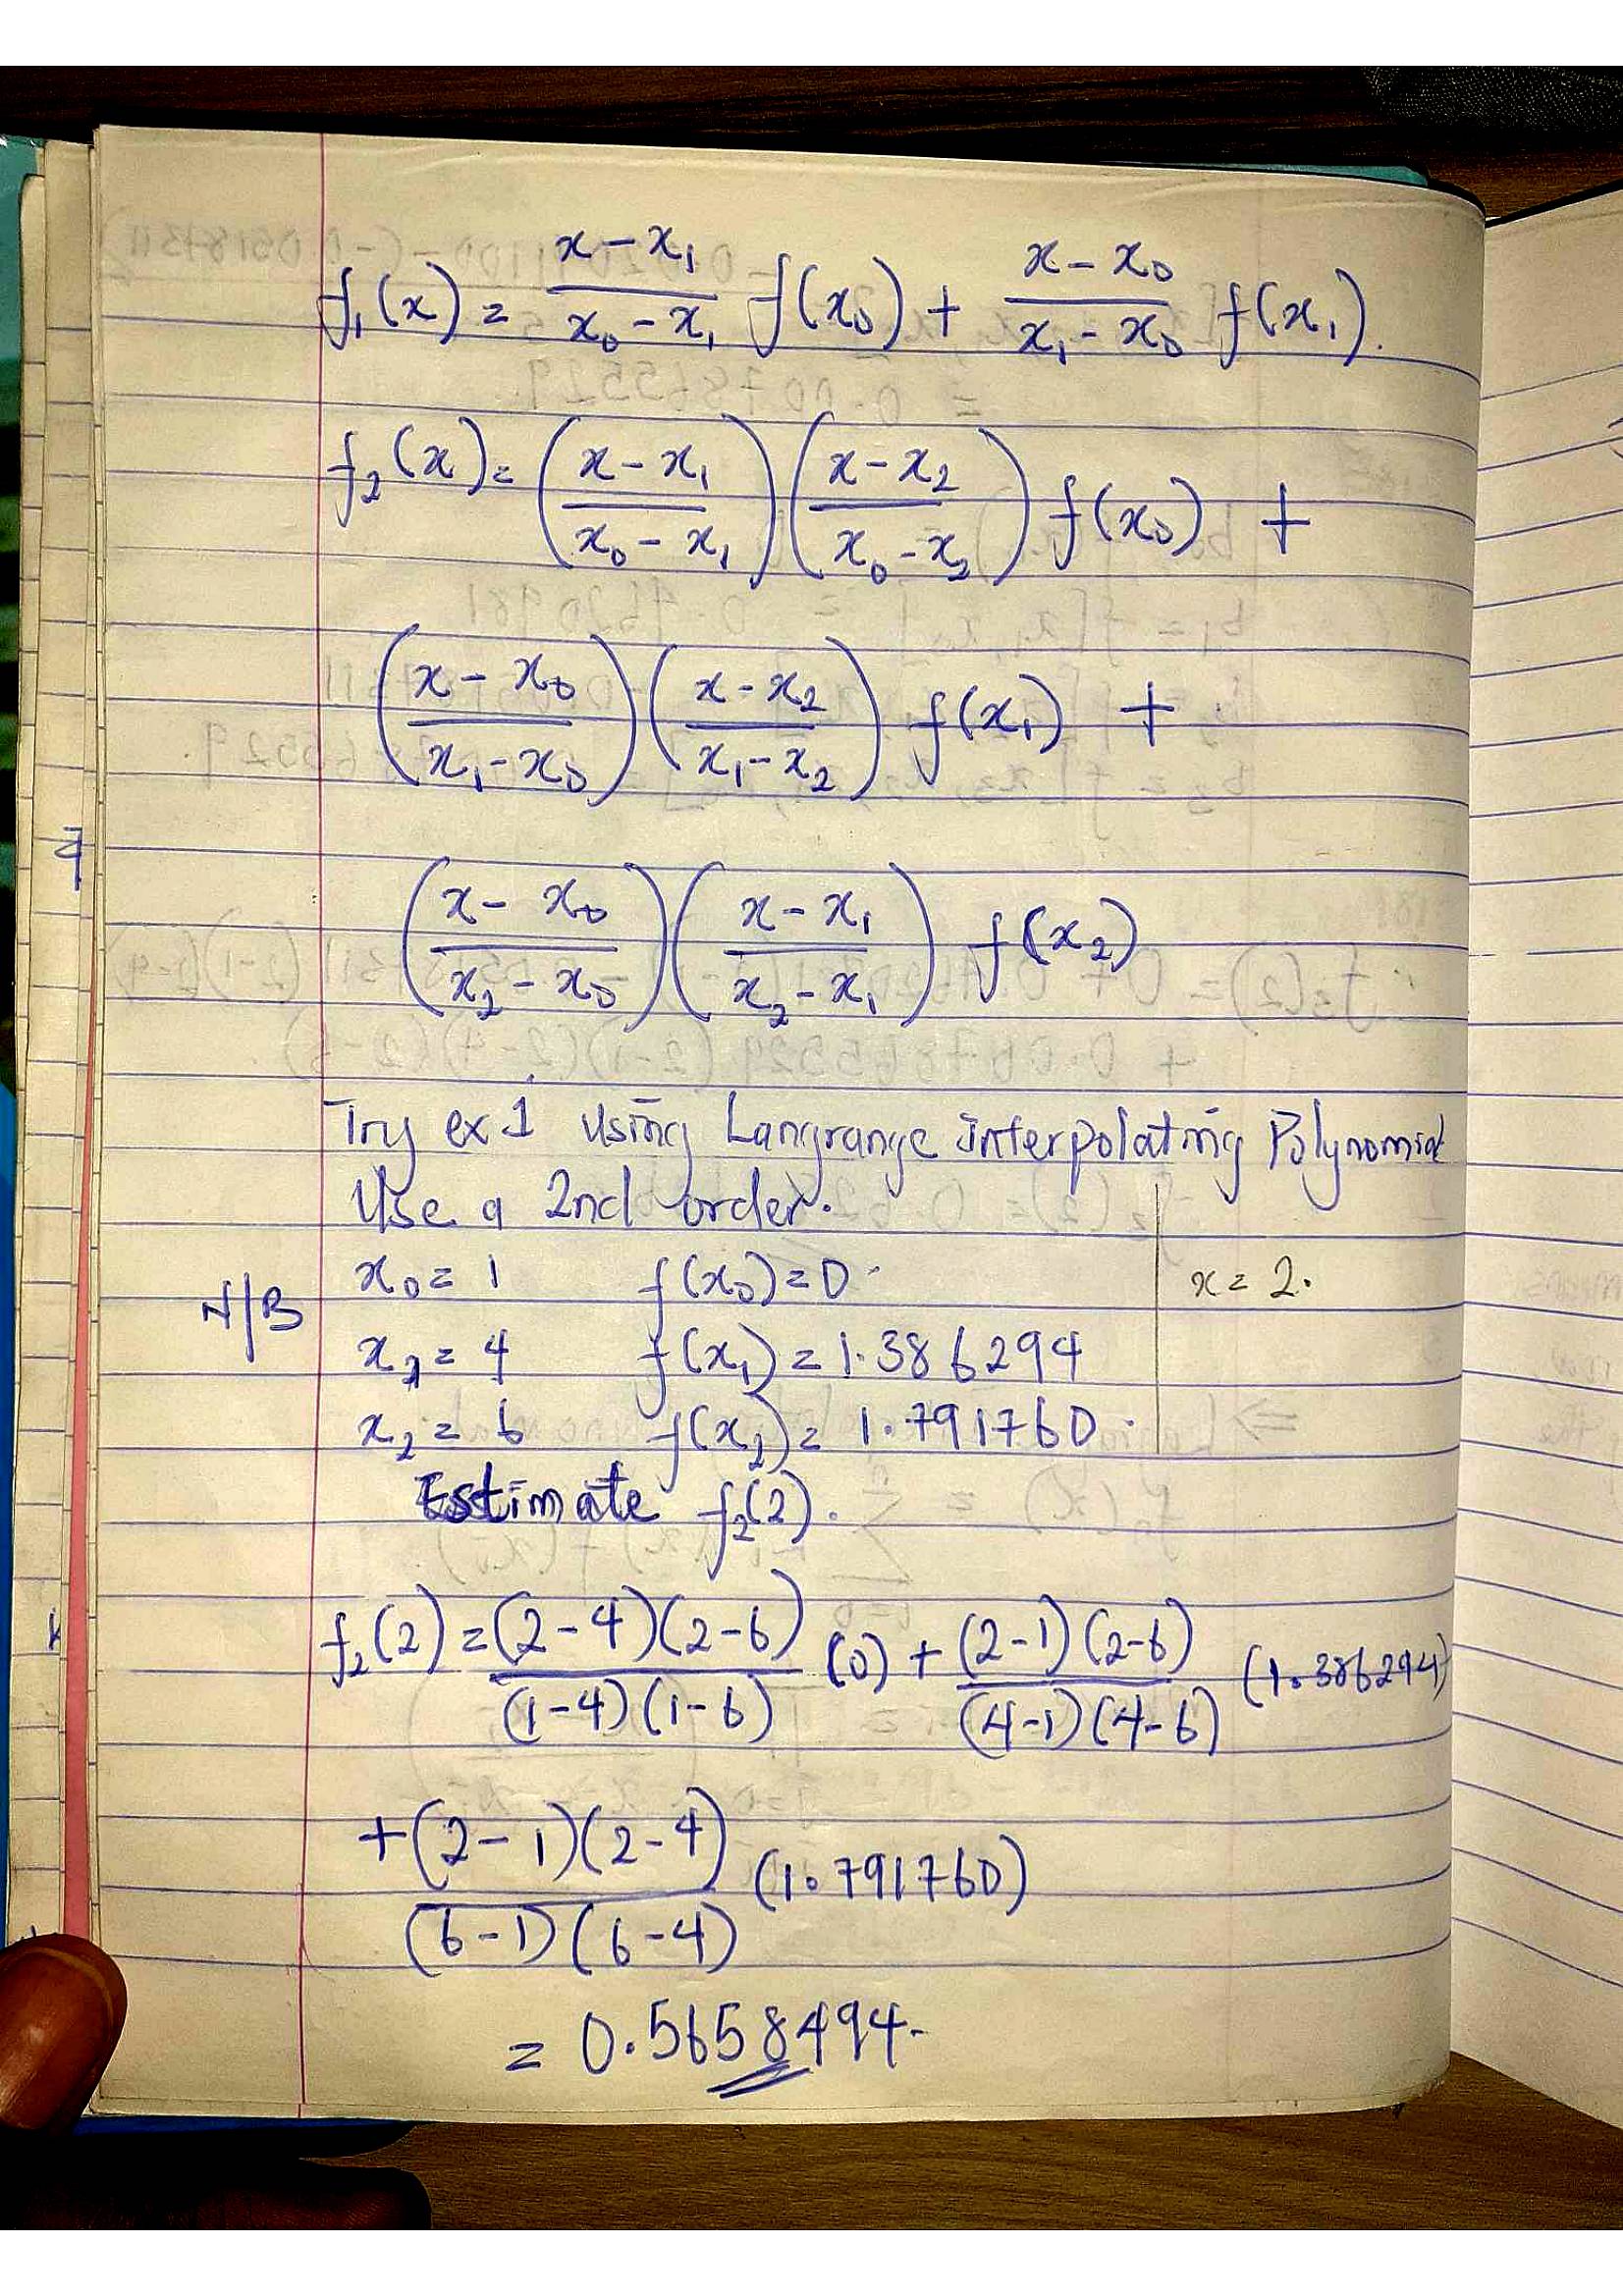 f₁(x) = (x - x₁)/(x₀ - x₁) f(x₀) + (x - x₀)/(x₁ - x₀) f(x₁).
f₂(x) = ((x - x₁)/(x₀ - x₁)) ((x - x₂)/(x₀ - x₂)) f(x₀) +
((x - x₀)/(x₁ - x₀)) ((x - x₂)/(x₁ - x₂)) f(x₁) +
((x - x₀)/(x₂ - x₀)) ((x - x₁)/(x₂ - x₁)) f(x₂)
Try ex 1 using Langrange interpolating Polynomial
Use a 2nd order.
x₀ = 1 f(x₀) = 0 x = 2.
N/B
x₁ = 4 f(x₁) = 1.386294
x₂ = 6 f(x₂) = 1.791760.
Estimate f₂(2).
f₂(2) = (2-4)(2-6)/(1-4)(1-6) (0) + (2-1)(2-6)/(4-1)(4-6) (1.386294)
+ (2-1)(2-4)/(6-1)(6-4) (1.791760)
= 0.5658494.